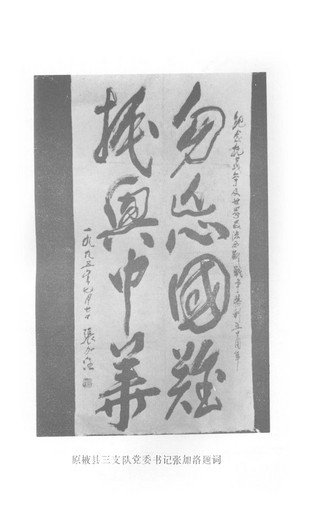 纪念抗日战争及世界反法西斯战争胜利五十周年
勿忘國難
振興中華
一九九五年七月
张加洛
原掖县三支队党委书记张加洛题词